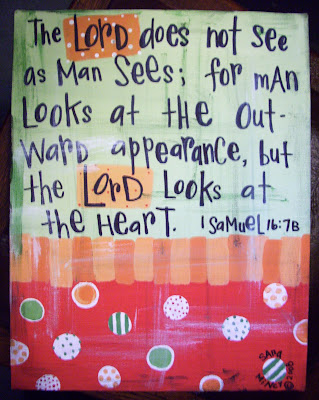 The LORD does not see
as Man Sees; for mAn
Looks at tHe Out-
Ward appearance, but
the LorD Looks at
the HearT. 1 SaMueL 16:7B